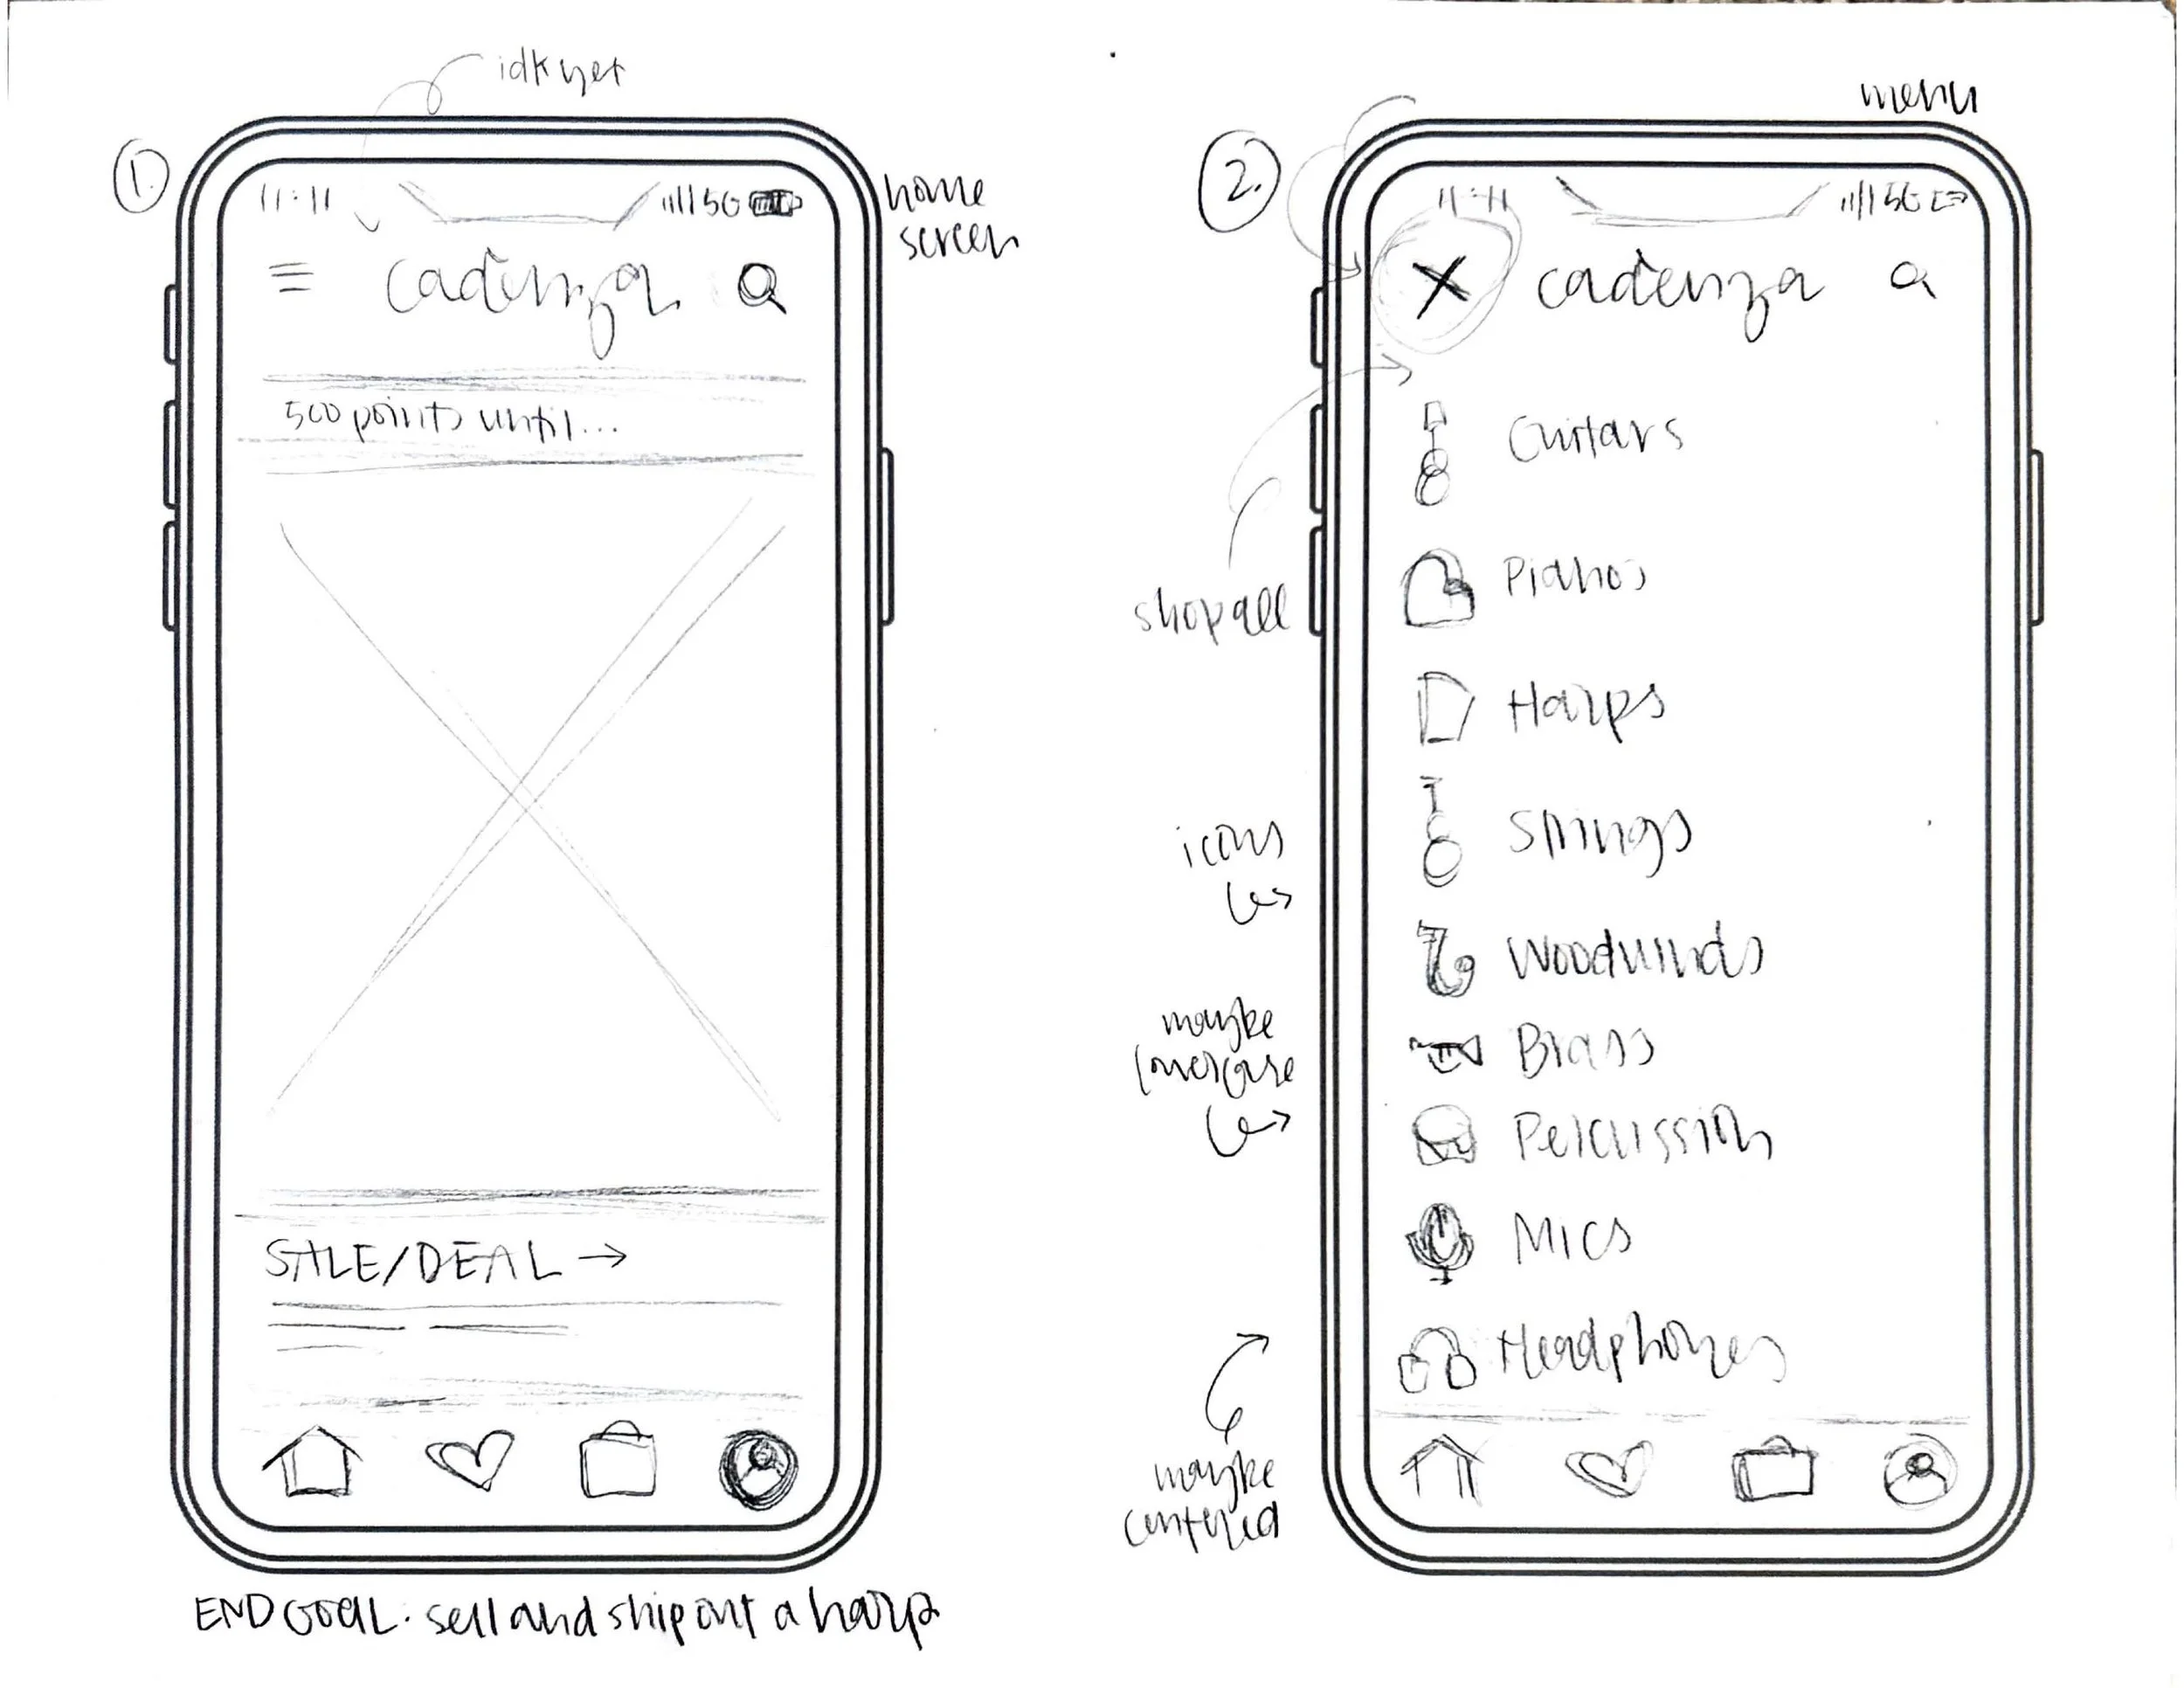 idk yet
1.
home
screen
11:11
5G
cadenza
500 points until...
SALE/DEAL →
END GOAL: sell and ship out a harp
menu
2.
11:11
5G
cadenza
shop all
Guitars
Pianos
Harps
icons
Strings
Woodwinds
maybe
lowercase
Brass
Percussion
Mics
Headphones
maybe
centered